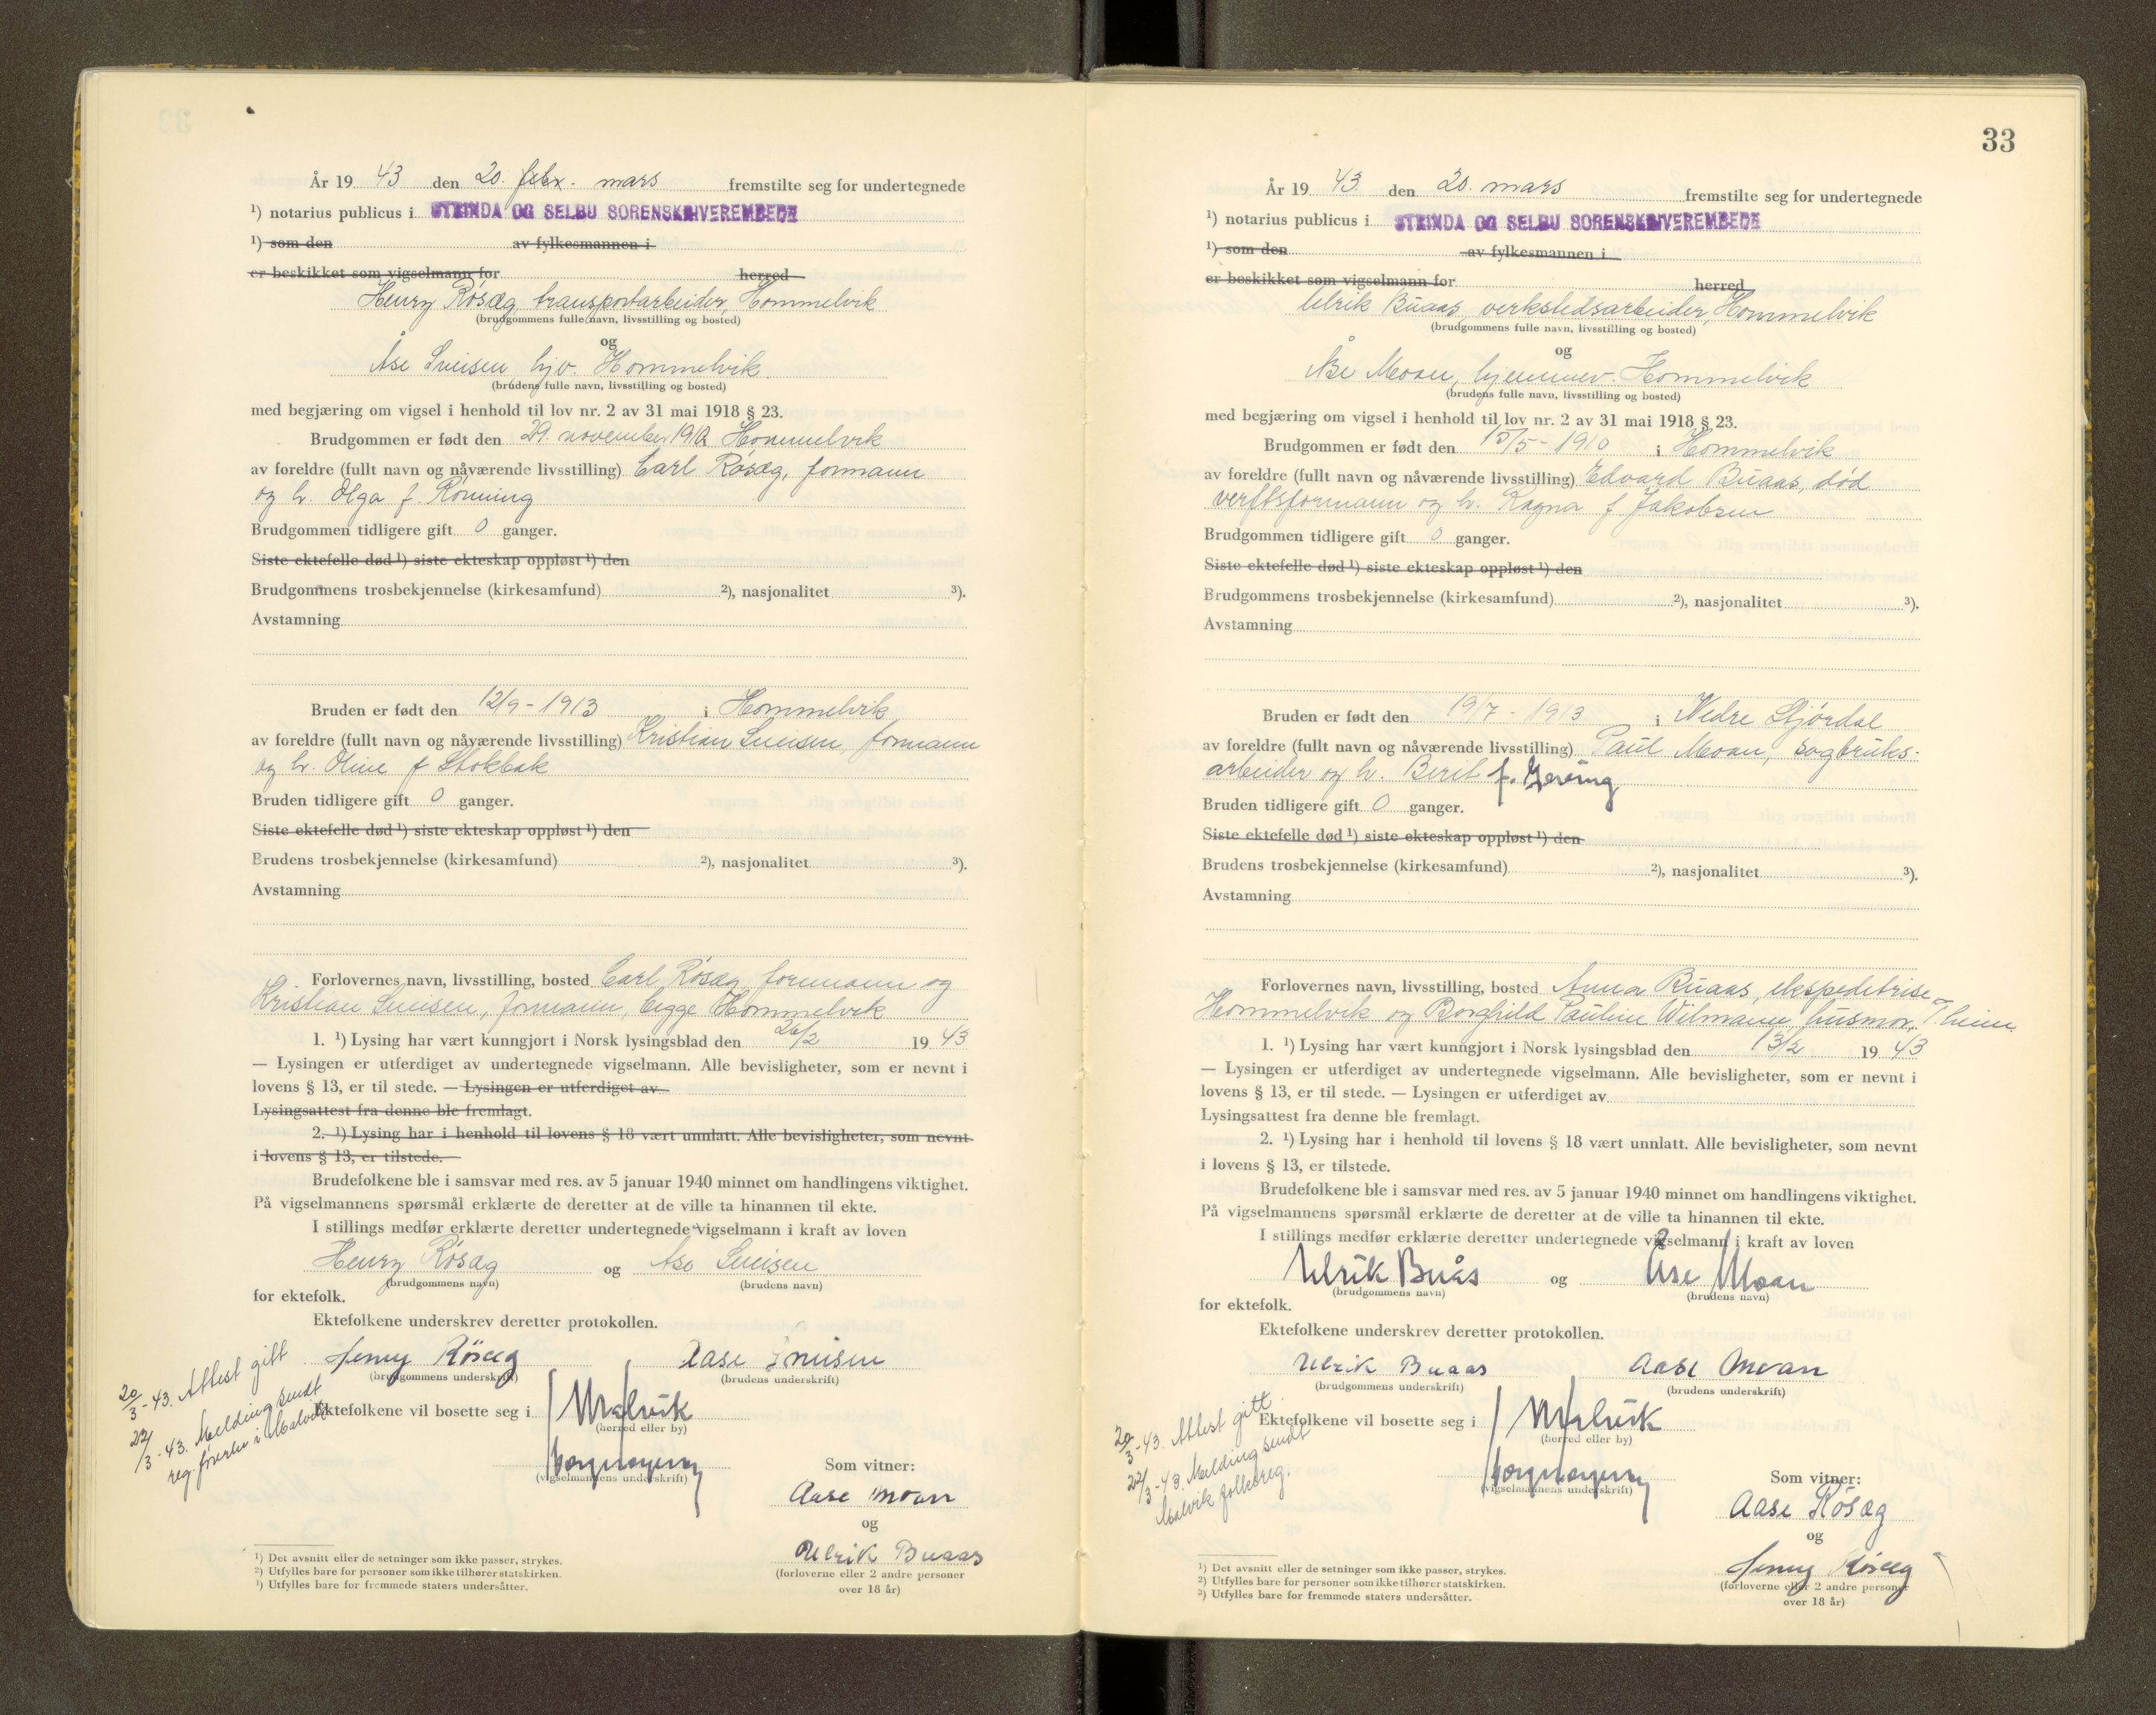 År 19 43 den 20. febr. mars fremstilte seg for undertegnede
¹) notarius publicus i STRINDA OG SELBU SORENSKRIVEREMBEDE
¹) som den av fylkesmannen i
er beskikket som vigselmann for herred
Henry Røsæg transportarbeider, Hommelvik
(brudgommens fulle navn, livsstilling og bosted)
og
Åse Sneisen, hjv. Hommelvik
(brudens fulle navn, livsstilling og bosted)
med begjæring om vigsel i henhold til lov nr. 2 av 31 mai 1918 § 23.
Brudgommen er født den 29. november 1912 Hommelvik
av foreldre (fullt navn og nåværende livsstilling) Carl Røsæg, formann
og h. Olga f. Rønning
Brudgommen tidligere gift 0 ganger.
Siste ektefelle død ¹) siste ekteskap oppløst ¹) den
Brudgommens trosbekjennelse (kirkesamfund) ²), nasjonalitet ³).
Avstamning
Bruden er født den 12/9 - 1913 i Hommelvik
av foreldre (fullt navn og nåværende livsstilling) Kristian Sneisen, formann
og h. Oline f Stokbak
Bruden tidligere gift 0 ganger.
Siste ektefelle død ¹) siste ekteskap oppløst ¹) den
Brudens trosbekjennelse (kirkesamfund) ²), nasjonalitet ³).
Avstamning
Forlovernes navn, livsstilling, bosted Carl Røsæg, formann og
Kristian Sneisen, formann, begge Hommelvik
1. ¹) Lysing har vært kunngjort i Norsk lysingsblad den 26/2 19 43
— Lysingen er utferdiget av undertegnede vigselmann. Alle bevisligheter, som er nevnt i
lovens § 13, er til stede. — Lysingen er utferdiget av
Lysingsattest fra denne ble fremlagt.
2. ¹) Lysing har i henhold til lovens § 18 vært unnlatt. Alle bevisligheter, som nevnt
i lovens § 13, er tilstede.
Brudefolkene ble i samsvar med res. av 5 januar 1940 minnet om handlingens viktighet.
På vigselmannens spørsmål erklærte de deretter at de ville ta hinannen til ekte.
I stillings medfør erklærte deretter undertegnede vigselmann i kraft av loven
Henry Røsæg og Åse Sneisen
(brudgommens navn) (brudens navn)
for ektefolk.
Ektefolkene underskrev deretter protokollen.
Henry Røsæg Aase Sneisen
(brudgommens underskrift) (brudens underskrift)
20/3 - 43. Attest gitt
22/3 - 43. Melding sendt
reg.fører i Malvik
Ektefolkene vil bosette seg i Malvik
(herred eller by)
(vigselmannens underskrift)
Som vitner:
Aase Moan
og
Ulrik Buaas
(forloverne eller 2 andre personer
over 18 år)
¹) Det avsnitt eller de setninger som ikke passer, strykes.
²) Utfylles bare for personer som ikke tilhører statskirken.
³) Utfylles bare for fremmede staters undersåtter.
33
År 19 43 den 20. mars fremstilte seg for undertegnede
¹) notarius publicus i STRINDA OG SELBU SORENSKRIVEREMBEDE
¹) som den av fylkesmannen i
er beskikket som vigselmann for herred
Ulrik Buaas, verkstedsarbeider, Hommelvik
(brudgommens fulle navn, livsstilling og bosted)
og
Åse Moan, hjemmev. Hommelvik
(brudens fulle navn, livsstilling og bosted)
med begjæring om vigsel i henhold til lov nr. 2 av 31 mai 1918 § 23.
Brudgommen er født den 15/5 - 1910 i Hommelvik
av foreldre (fullt navn og nåværende livsstilling) Edvard Buaas, død
verftsformann og h. Ragna f Jakobsen
Brudgommen tidligere gift 0 ganger.
Siste ektefelle død ¹) siste ekteskap oppløst ¹) den
Brudgommens trosbekjennelse (kirkesamfund) ²), nasjonalitet ³).
Avstamning
Bruden er født den 19/7 - 1913 i Nedre Stjørdal
av foreldre (fullt navn og nåværende livsstilling) Paul Moan, sagbruks-
arbeider og h. Berit f.
Bruden tidligere gift 0 ganger.
Siste ektefelle død ¹) siste ekteskap oppløst ¹) den
Brudens trosbekjennelse (kirkesamfund) ²), nasjonalitet ³).
Avstamning
Forlovernes navn, livsstilling, bosted Anna Buaas, ekspeditrise
Hommelvik og Borghild Pauline Wilmann, husmor, T.heim
1. ¹) Lysing har vært kunngjort i Norsk lysingsblad den 13/2 19 43
— Lysingen er utferdiget av undertegnede vigselmann. Alle bevisligheter, som er nevnt i
lovens § 13, er til stede. — Lysingen er utferdiget av
Lysingsattest fra denne ble fremlagt.
2. ¹) Lysing har i henhold til lovens § 18 vært unnlatt. Alle bevisligheter, som nevnt
i lovens § 13, er tilstede.
Brudefolkene ble i samsvar med res. av 5 januar 1940 minnet om handlingens viktighet.
På vigselmannens spørsmål erklærte de deretter at de ville ta hinannen til ekte.
I stillings medfør erklærte deretter undertegnede vigselmann i kraft av loven
Ulrik Buås og Åse Moan
(brudgommens navn) (brudens navn)
for ektefolk.
Ektefolkene underskrev deretter protokollen.
Ulrik Buaas Aase Moan
(brudgommens underskrift) (brudens underskrift)
20/3 - 43. Attest gitt
22/3 - 43. Melding sendt
Malvik folkereg.
Ektefolkene vil bosette seg i Malvik
(herred eller by)
(vigselmannens underskrift)
Som vitner:
Aase Røsæg
og
Henry Røsæg
(forloverne eller 2 andre personer
over 18 år)
¹) Det avsnitt eller de setninger som ikke passer, strykes.
²) Utfylles bare for personer som ikke tilhører statskirken.
³) Utfylles bare for fremmede staters undersåtter.